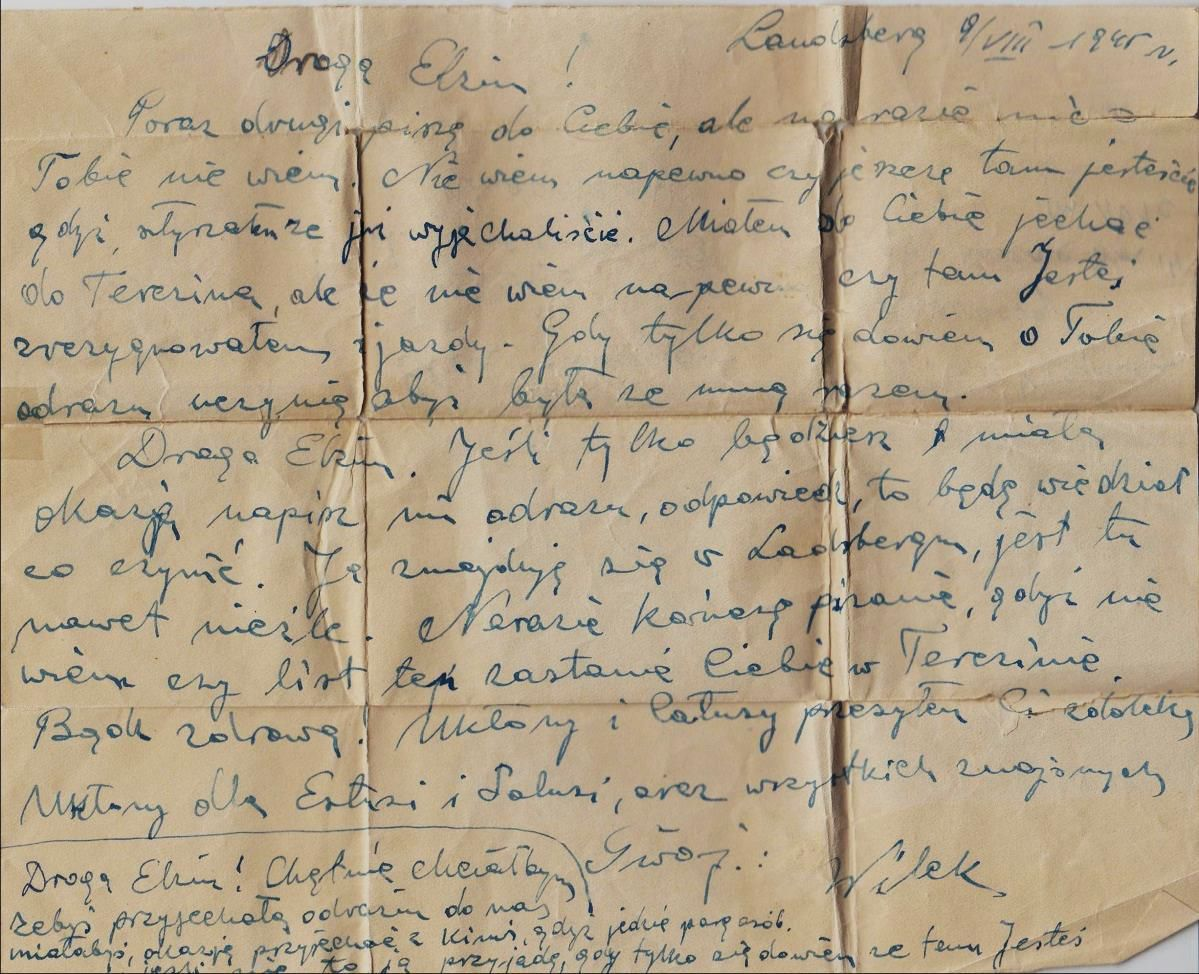 Landsberg 9/VIII 1945 r.
Droga Elziu!
Poraz drugi piszę do Ciebie, ale na razie nic o
Tobie nie wiem. Nie wiem napewno czy jeszcze tam jesteście
gdyż, słyszałem że już wyjechaliście. Miałem do Ciebie jechać
do Terezina, ale że nie wiem na pewno czy tam Jesteś
zrezygnowałem z jazdy. Gdy tylko się dowiem o Tobie
odrazu uczynię abyś była ze mną razem.
Droga Elziu. Jeśli tylko będziesz miała
okazję napisz mi odrazu, odpowiedz, to będę wiedział
co czynić. Ja znajduję się w Ladsbergu, jest tu
nawet nieźle. Narazie kończę pisanie, gdyż nie
wiem czy list ten zastanie Ciebie w Terezinie.
Bądz zdrowa! Ukłony i całusy przesyłam Ci zdaleka
Ukłony dla Estusi i Salusi, oraz wszystkich znajomych
Twój.: Wilek
Droga Elziu! Chętnie chciałbym
żebyś przyjechała odrazu do nas
miałabyś, okazję przyjechać z Kimś, gdyż jedzie parę osób.
jeśli nie to ja przyjadę, gdy tylko się dowiem że tam Jesteś